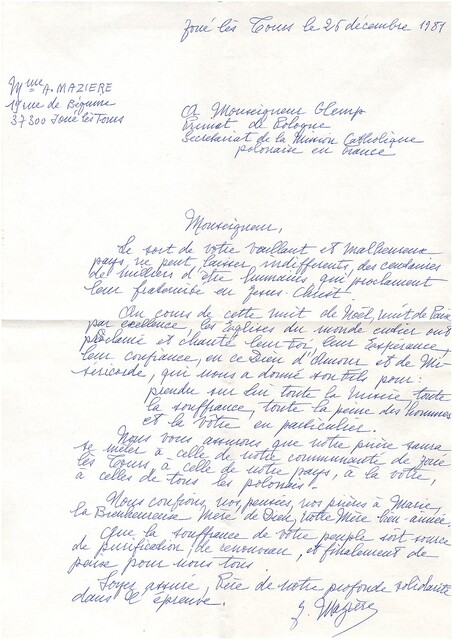 Joué lès Tours le 25 décembre 1981
Mme A. MAZIERE
rue de Bigorre
37300 Joué les Tours
A Monseigneur Glemp
Primat de Pologne
Secrétariat de la Mission Catholique
polonaise en France
Monseigneur,
Le sort de votre vaillant et malheureux
pays ne peut laisser indifférents, des centaines
de milliers d'être humains qui proclament
leur fraternité en Jésus-Christ.
Au cours de cette nuit de Noël, nuit de Paix
par excellence, les Eglises du monde entier ont
proclamé et chanté leur foi, leur Espérance,
leur confiance, en ce Dieu d'Amour et de Mi-
séricorde, qui nous a donné son Fils pour:
prendre sur lui toute la Misère toute
la souffrance, toute la peine des hommes
et la vôtre en particulier.
Nous vous assurons que notre prière saura
se mêler à celle de notre communauté de Joué
lès Tours, à celle de notre pays, à la vôtre,
à celles de tous les polonais.
Nous confions, nos pensées, nos prières à Marie,
la Bienheureuse Mère de Dieu, votre Mère bien-aimée.
Que la souffrance de votre peuple soit source
de purification, de renouveau, et finalement de
paix pour nous tous.
Soyez assuré, Père de notre profonde solidarité
dans l'épreuve.
Mazière